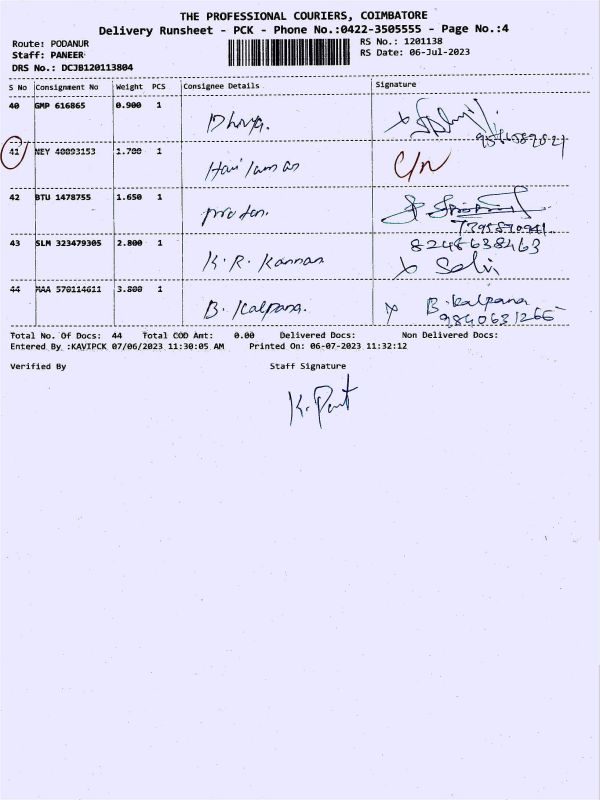 THE PROFESSIONAL COURIERS, COIMBATORE
Delivery Runsheet - PCK - Phone No.:0422-3505555 - Page No.:4
Route: PODANUR
RS No.: 1201138
Staff: PANEER
RS Date: 06-Jul-2023
DRS No.: DCJB120113804
S No Consignment No Weight PCS Consignee Details Signature
40 GMP 616865 0.900 1
41 NEY 40093153 1.700 1 C/N
42 BTU 1478755 1.650 1 proton.
43 SLM 323479305 2.800 1 K.R. Kannan 8248638463
x Selvi
44 MAA 570114611 3.800 1 B. Kalpana. x B. Kalpana
9840631266
Total No. Of Docs: 44 Total COD Amt: 0.00 Delivered Docs: Non Delivered Docs:
Entered By :KAVIPCK 07/06/2023 11:30:05 AM Printed On: 06-07-2023 11:32:12
Verified By Staff Signature